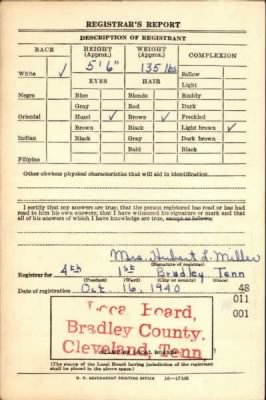 REGISTRAR'S REPORT
DESCRIPTION OF REGISTRANT
RACE HEIGHT (Approx.) WEIGHT (Approx.) COMPLEXION
White ✓ 5' 6" 135 lbs Sallow
EYES HAIR Light
Negro Blue Blonde Ruddy
Gray Red Dark
Oriental Hazel ✓ Brown ✓ Freckled
Brown Black Light brown ✓
Indian Black Gray Dark brown
Bald Black
Filipino
Other obvious physical characteristics that will aid in identification
I certify that my answers are true; that the person registered has read or has had
read to him his own answers; that I have witnessed his signature or mark and that
all of his answers of which I have knowledge are true, except as follows:
Mrs. Hubert L. Miller
(Signature of registrar)
Registrar for 4th 1st Bradley Tenn
(Precinct) (Ward) (City or county) (State)
Date of registration Oct. 16, 1940
48
011
001
Local Board,
Bradley County.
Cleveland, Tenn.
(STAMP OF LOCAL BOARD)
(The stamp of the Local Board having jurisdiction of the registrant
shall be placed in the above space.)
U. S. GOVERNMENT PRINTING OFFICE